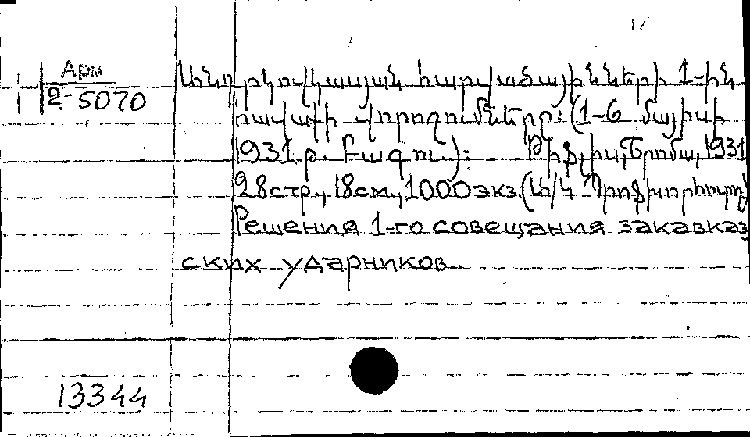 Арм
2-5070
Անդրկովկասյան հարվածայինների 1-ին
որոշումները: (1-6 մայիսի
1931 թ. Բագու): Թիֆլիս, 1931
28 стр., 18 см., 1000 экз.
Решения 1-го совещания закавказ
ских ударников
13344